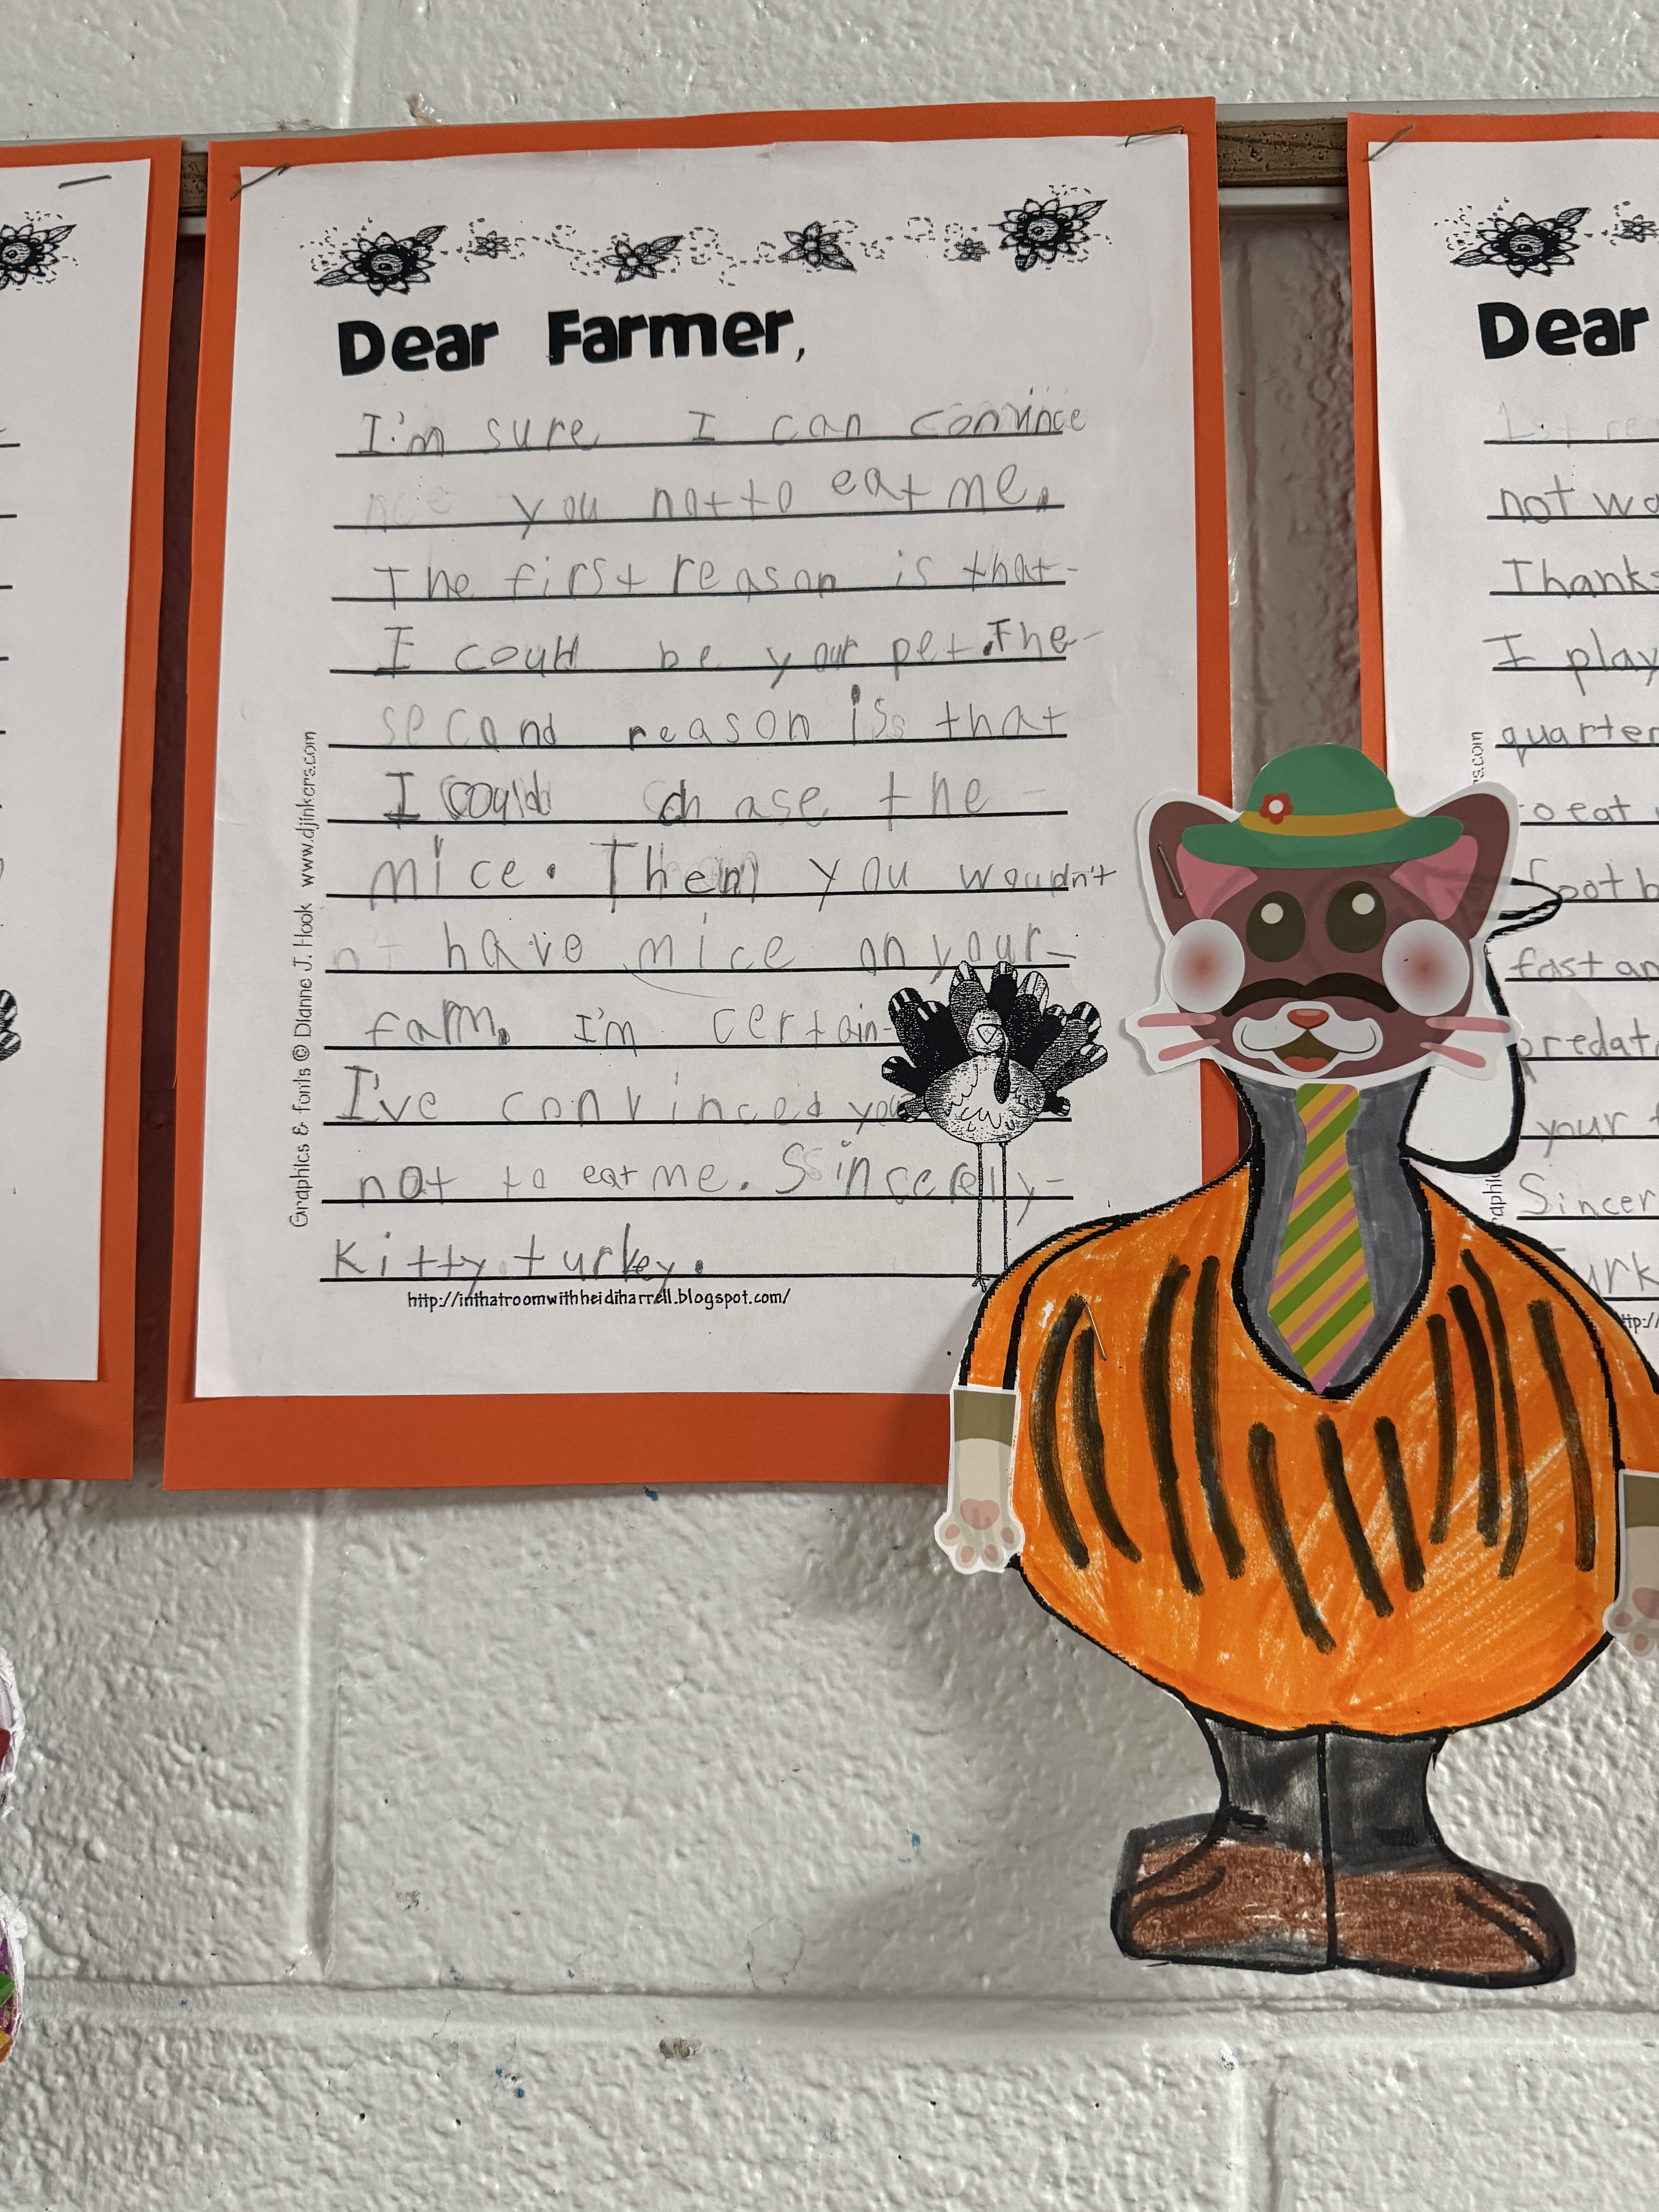 Dear Farmer,
I'm sure I can convince
you not to eat me.
The first reason is that
I could be your pet. The
second reason is that
I could chase the
mice. Then you wouldn't
have mice on your
farm. I'm certain
I've convinced you
not to eat me. Sincerely
Kitty turkey.
http://inthatroomwithheidiharrell.blogspot.com/
Graphics & fonts © Dianne J. Hook www.djinkers.com
Dear
1st
not
Thanks
I play
quarter
to eat
fast an
your
Sincer